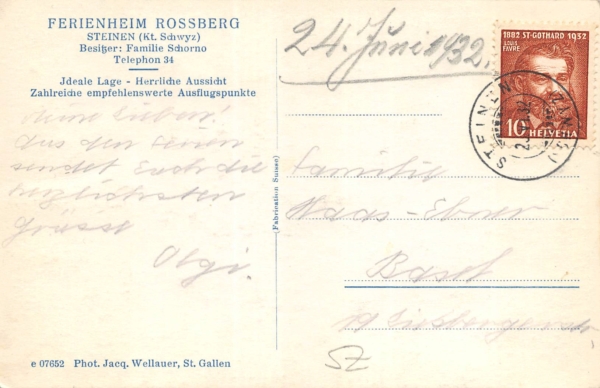 FERIENHEIM ROSSBERG
STEINEN (Kt. Schwyz)
Besitzer: Familie Schorno
Telephon 34
Jdeale Lage - Herrliche Aussicht
Zahlreiche empfehlenswerte Ausflugspunkte
Meine Lieben!
Aus den Ferien
sendet Euch die
herzlichsten
Grüsse
Olgi.
e 07652 Phot. Jacq. Wellauer, St. Gallen
(Fabrication Suisse)
24. Juni 1932.
1882 ST-GOTHARD 1932
LOUIS
FAVRE
10 HELVETIA
STEINEN
Familie
Haas-Ebner
Basel
SZ